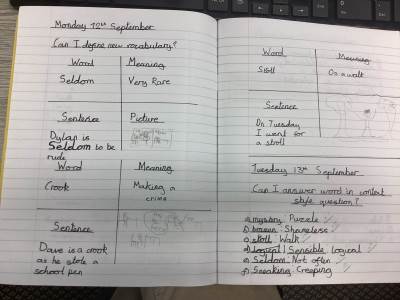 Monday 12th September
Can I define new vocabulary?
Word Meaning
Seldom Very Rare
Sentence Picture
Dylan is
Seldom to be
rude
Word Meaning
Crook Making a
crime
Sentence
Dave is a crook
as he stole a
school pen
Word Meaning
Stroll On a walk
Sentence
On Tuesday
I went for
a stroll
Tuesday 13th September
Can I answer word in context
style question?
a) mystery Puzzle
b) Shameless
c) stroll Walk
d) logical Sensible logical
e) Seldom Not often
f) Sneaking Creeping